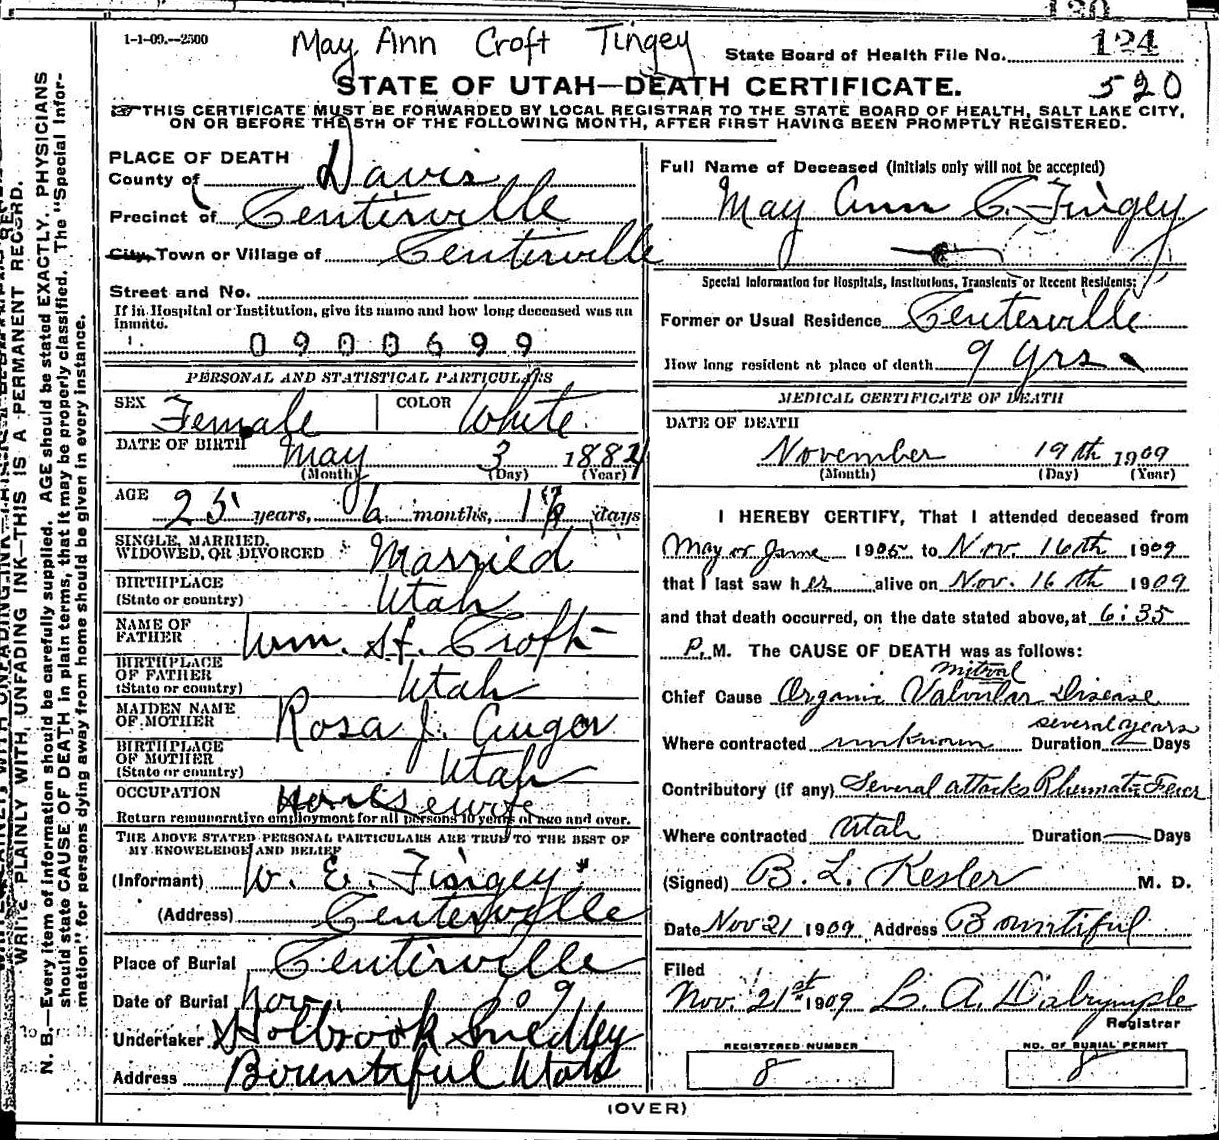 130
1-1-09.--2500
May Ann Croft Tingey
State Board of Health File No. 124
STATE OF UTAH—DEATH CERTIFICATE. 520
THIS CERTIFICATE MUST BE FORWARDED BY LOCAL REGISTRAR TO THE STATE BOARD OF HEALTH, SALT LAKE CITY,
ON OR BEFORE THE 5TH OF THE FOLLOWING MONTH, AFTER FIRST HAVING BEEN PROMPTLY REGISTERED.
WRITE PLAINLY WITH UNFADING INK—THIS IS A PERMANENT RECORD.
N. B.—Every item of information should be carefully supplied. AGE should be stated EXACTLY. PHYSICIANS
should state CAUSE OF DEATH in plain terms, that it may be properly classified. The "Special Infor-
mation" for persons dying away from home should be given in every instance.
PLACE OF DEATH
County of Davis
Precinct of Centerville
City, Town or Village of Centerville
Street and No.
If in Hospital or Institution, give its name and how long deceased was an
Inmate.
0900699
PERSONAL AND STATISTICAL PARTICULARS
SEX Female COLOR White
DATE OF BIRTH May 3 1884
(Month) (Day) (Year)
AGE 25 years, 6 months, days
SINGLE, MARRIED,
WIDOWED, OR DIVORCED Married
BIRTHPLACE
(State or country) Utah
NAME OF
FATHER Wm. St. Croft
BIRTHPLACE
OF FATHER
(State or country) Utah
MAIDEN NAME
OF MOTHER Rosa J. Auger
BIRTHPLACE
OF MOTHER
(State or country) Utah
OCCUPATION Housewife
Return remunerative employment for all persons 10 years of age and over.
THE ABOVE STATED PERSONAL PARTICULARS ARE TRUE TO THE BEST OF
MY KNOWELEDGE AND BELIEF
(Informant) W. E. Tingey
(Address) Centerville
Place of Burial Centerville
Date of Burial Nov. 09
Undertaker Holbrook Smedley
Address Bountiful Utah
Full Name of Deceased (Initials only will not be accepted)
May Ann C. Tingey
Special Information for Hospitals, Institutions, Transients or Recent Residents:
Former or Usual Residence Centerville
How long resident at place of death 9 yrs.
MEDICAL CERTIFICATE OF DEATH
DATE OF DEATH
November 19th 1909
(Month) (Day) (Year)
I HEREBY CERTIFY, That I attended deceased from
May or June 1905 to Nov. 16th 1909
that I last saw her alive on Nov. 16th 1909
and that death occurred, on the date stated above, at 6:35
P. M. The CAUSE OF DEATH was as follows:
mitral
Chief Cause Organic Valvular Disease
several years
Where contracted unknown Duration Days
Contributory (if any) Several attacks Rheumatic Fever
Where contracted Utah Duration Days
(Signed) B. L. Kesler M. D.
Date Nov 21 1909 Address Bountiful
Filed
Nov. 21st 1909 L. A. Dalrymple
Registrar
REGISTERED NUMBER NO. OF BURIAL PERMIT
8 8
(OVER)